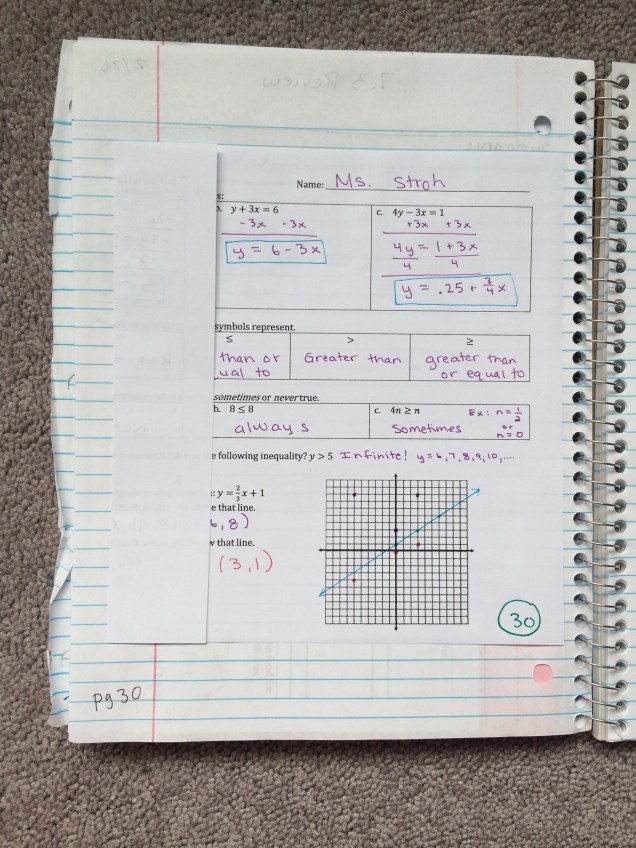 Name: Ms. Stroh
s:
b. y + 3x = 6
-3x -3x
y = 6 - 3x
c. 4y − 3x = 1
+3x +3x
4y = 1 + 3x
4 4
y = .25 + 3/4 x
symbols represent.
≤ > ≥
than or
ual to
Greater than
greater than
or equal to
sometimes or never true.
b. 8 ≤ 8
always
c. 4n ≥ n
Sometimes
Ex: n = 1/2
or
n = 0
e following inequality? y > 5 Infinite! y = 6, 7, 8, 9, 10, ....
: y = 2/3 x + 1
e that line.
6, 8)
w that line.
(3, 1)
30
pg 30